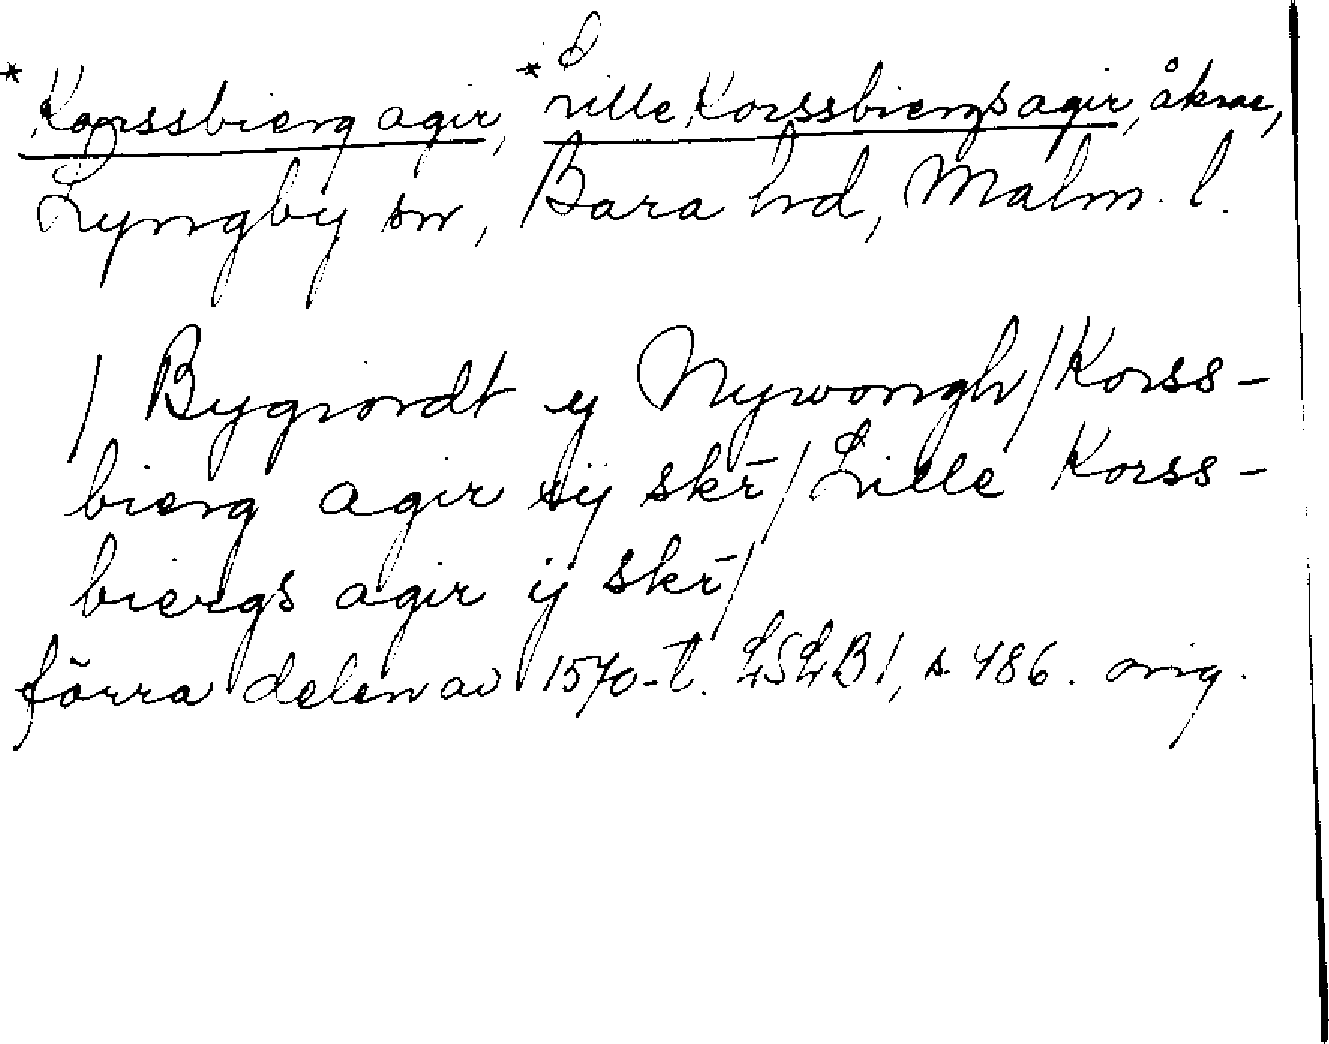 *Korssbierg agir, *Lille Korssbiergs agir, åkrar,
Lyngby sn, Bara hd, Malm. l.
/ Bygiordt y Nywongh / Korss-
bierg agir ij skr / Lille Korss-
biergs agir ij skr /
förra delen av 1570-t. LSLB 1, s. 486. orig.